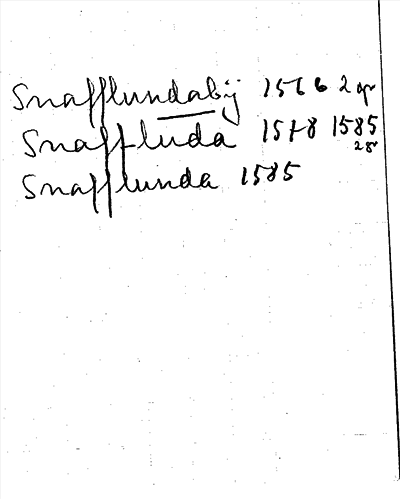 Snafflundabÿ 1566 2 gr
Snaffluda 1578 1585
2 gr
Snafflunda 1585